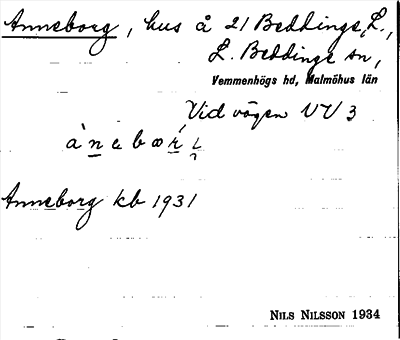 Anneborg, hus å 21 Beddinge, L.,
L. Beddinge sn,
Vemmenhögs hd, Malmöhus län
Vid vägen VV 3
Anneborg kb 1931
NILS NILSSON 1934